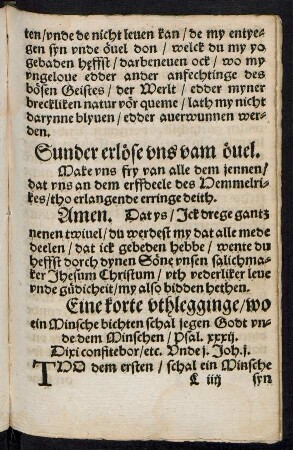 ten/vnde de nicht leuen kan/de my entye-
gen syn vnde öuel don/welck du my yo
gebaden heffst/darbeneuen ock/wo my
yngeloue edder ander anfechtinge des
bösen Geistes/der Werlt/edder myner
breckliken natur vör queme/lath my nicht
darynne blyuen/edder auerwunnen wer-
den.
Sunder erlöse vns vam öuel.
Make vns fry van alle dem jennen/
dat vns an dem erffdeele des Hemmelri-
kes/tho erlangende erringe deith.
Amen. Dat ys/Jck drege gantz
nenen twiuel/du werdest my dat alle mede
deelen/dat ick gebeden hebbe/wente du
heffst dorch dynen Söne vnsen salichma-
ker Jhesum Christum/vth vederliker leue
vnde güdicheit/my also bidden hethen.
Eine korte vthlegginge/wo
ein Minsche bichten schal jegen Godt vn-
de dem Minschen/Psal. xxxij.
Dixi confitebor/etc. Vnde j. Joh. j.
THO dem ersten/schal ein Minsche
L iiij syn